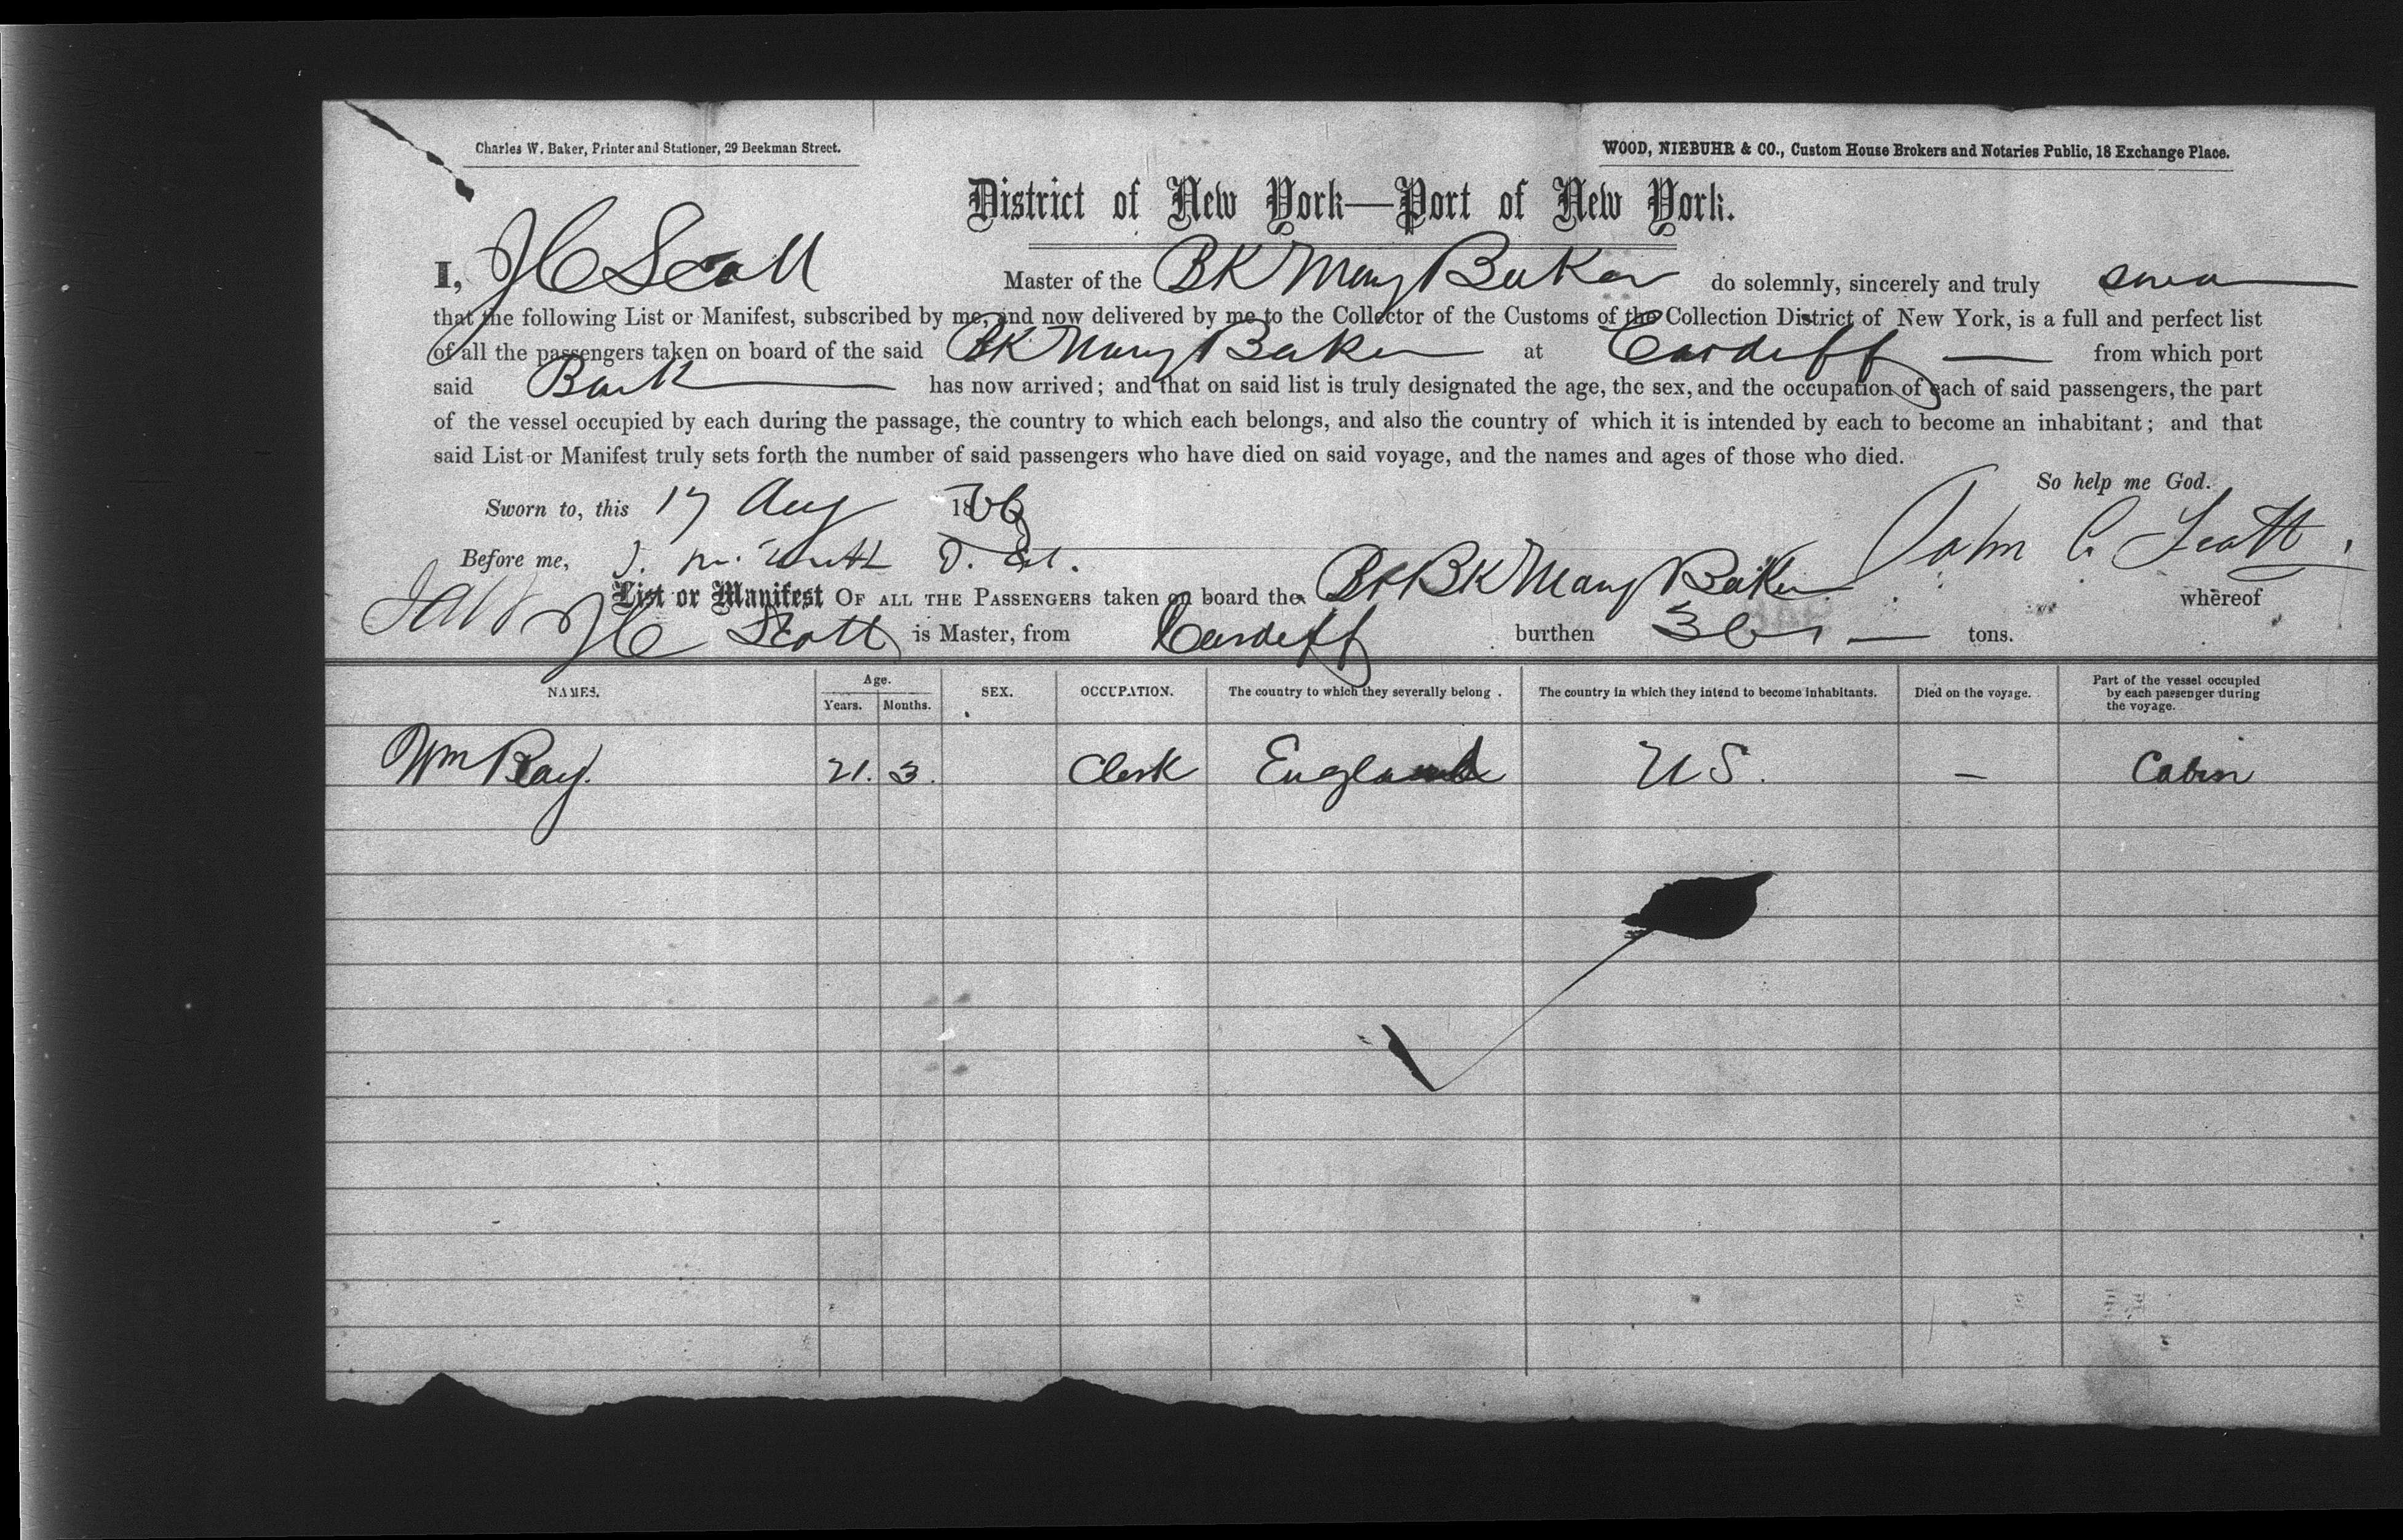 Charles W. Baker, Printer and Stationer, 29 Beekman Street.
WOOD, NIEBUHR & CO., Custom House Brokers and Notaries Public, 18 Exchange Place.
District of New York—Port of New York.
I, J C Scott Master of the BK Mary Baker do solemnly, sincerely and truly swear
that the following List or Manifest, subscribed by me, and now delivered by me to the Collector of the Customs of the Collection District of New York, is a full and perfect list
of all the passengers taken on board of the said BK Mary Baker at Cardiff — from which port
said Bark has now arrived; and that on said list is truly designated the age, the sex, and the occupation of each of said passengers, the part
of the vessel occupied by each during the passage, the country to which each belongs, and also the country of which it is intended by each to become an inhabitant; and that
said List or Manifest truly sets forth the number of said passengers who have died on said voyage, and the names and ages of those who died.
So help me God.
Sworn to, this 17 Aug 18
John C. Scott.
Before me,
List or Manifest OF ALL THE PASSENGERS taken on board the BK Mary Baker whereof
J C Scott is Master, from Cardiff burthen tons.
NAMES. Age. Years. Months. SEX. OCCUPATION. The country to which they severally belong. The country in which they intend to become inhabitants. Died on the voyage. Part of the vessel occupied by each passenger during the voyage.
Wm Ray. 21. 3. Clerk England U S. — Cabin